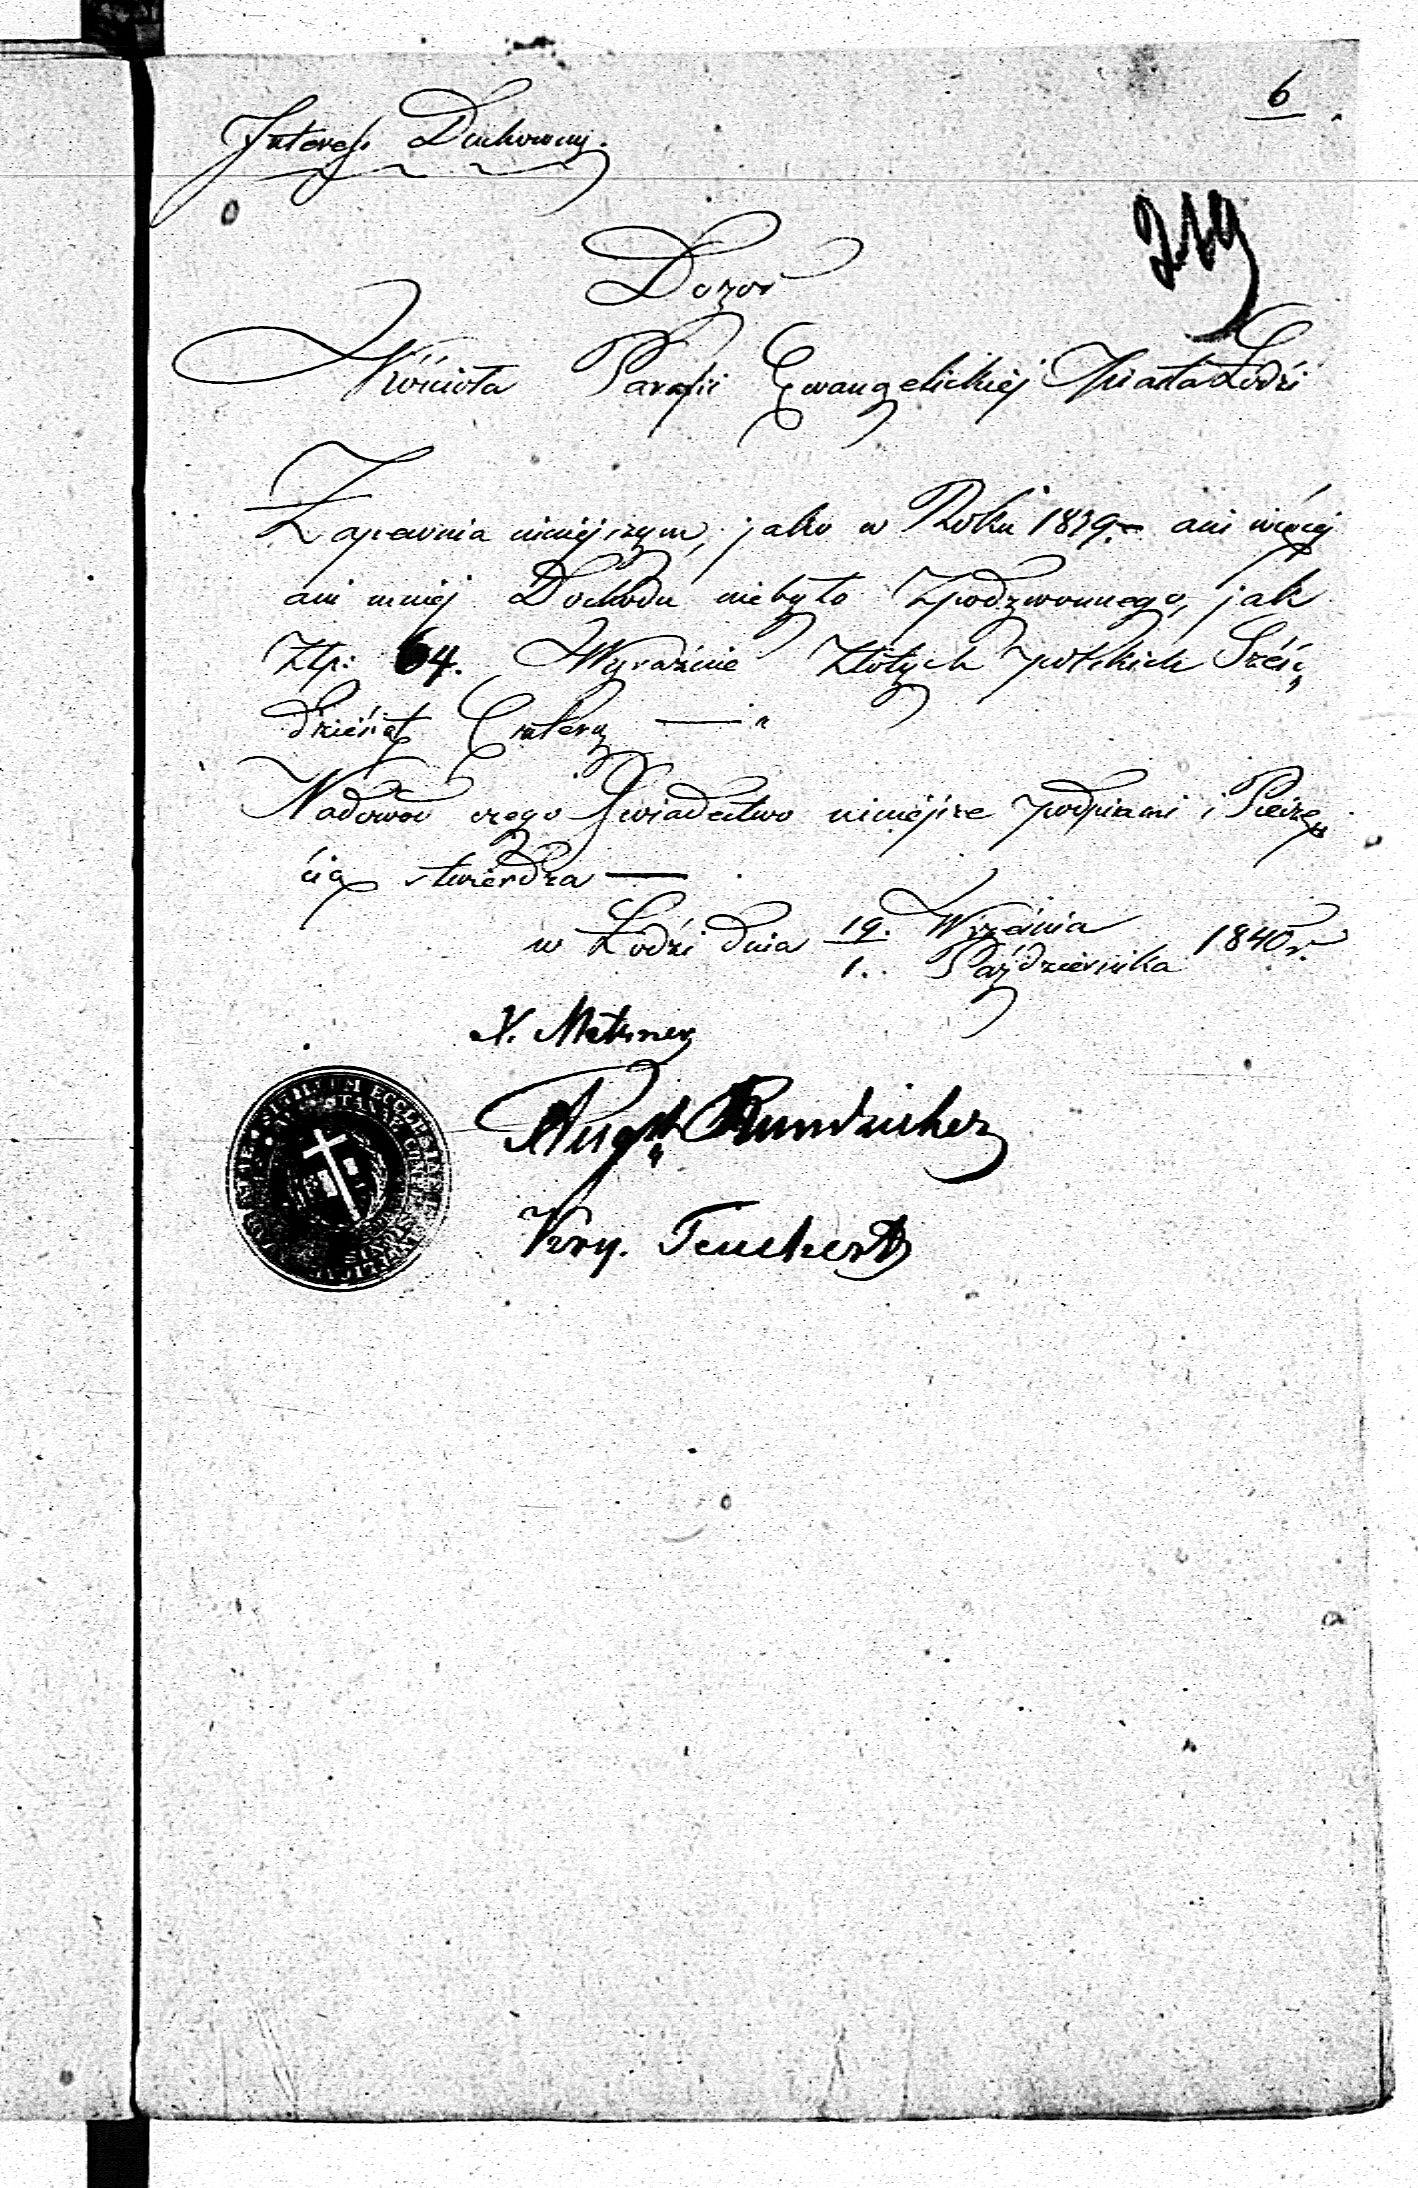 6.
Interess Duchowny.
249
Dozor
Kościoła Parafii Ewangelickiéj Miasta Łodzi
Zapewnia niniéjszym, jako w Roku 1839. ani więcéj
ani mniéj Dochodu niebyło Zpodzwonnego, jak
Złp: 64. Wyraźnie Złotych polskich Sześć„
dziesiąt Cztery —„
Nadowód czego Swiadectwo niniéjsze podpisami i Pieczę„
cią stwierdza —
w Łodzi dnia 19. Września
1. Października 1840 r.
X. Metzner
Aug.
Krys. Teuchert
SIGILLUM ECCLESIAE